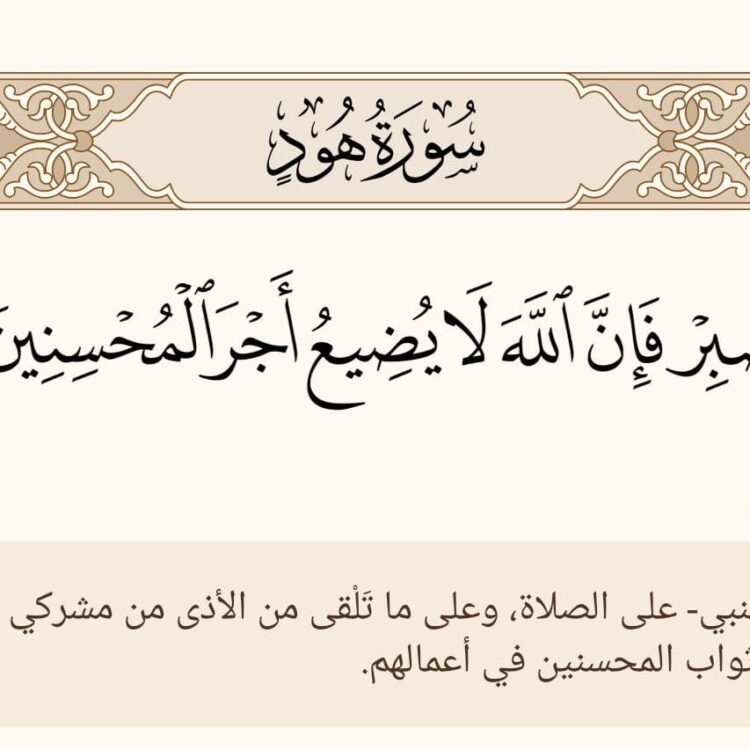 سُورَةُ هُودٍ
فَإِنَّ ٱللَّهَ لَا يُضِيعُ أَجْرَ ٱلْمُحْسِنِينَ
على الصلاة، وعلى ما تَلْقى من الأذى من مشركي
المحسنين في أعمالهم.